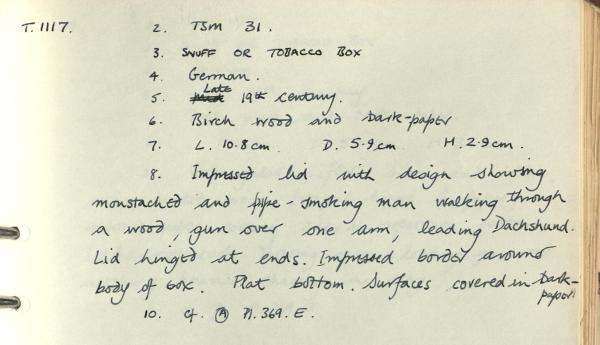 T.1117. 2. TSM 31.
3. SNUFF OR TOBACCO BOX
4. German.
5. Late 19th century.
6. Birch wood and Dark-paper
7. L. 10.8cm. D. 5.9cm. H. 2.9cm.
8. Impressed lid with design showing
moustached and pipe-smoking man walking through
a wood, gun over one arm, leading Dachshund.
Lid hinged at ends. Impressed border around
body of box. Flat bottom. Surfaces covered in Dark-
paper.
10. Cf. A Pl. 369. E.